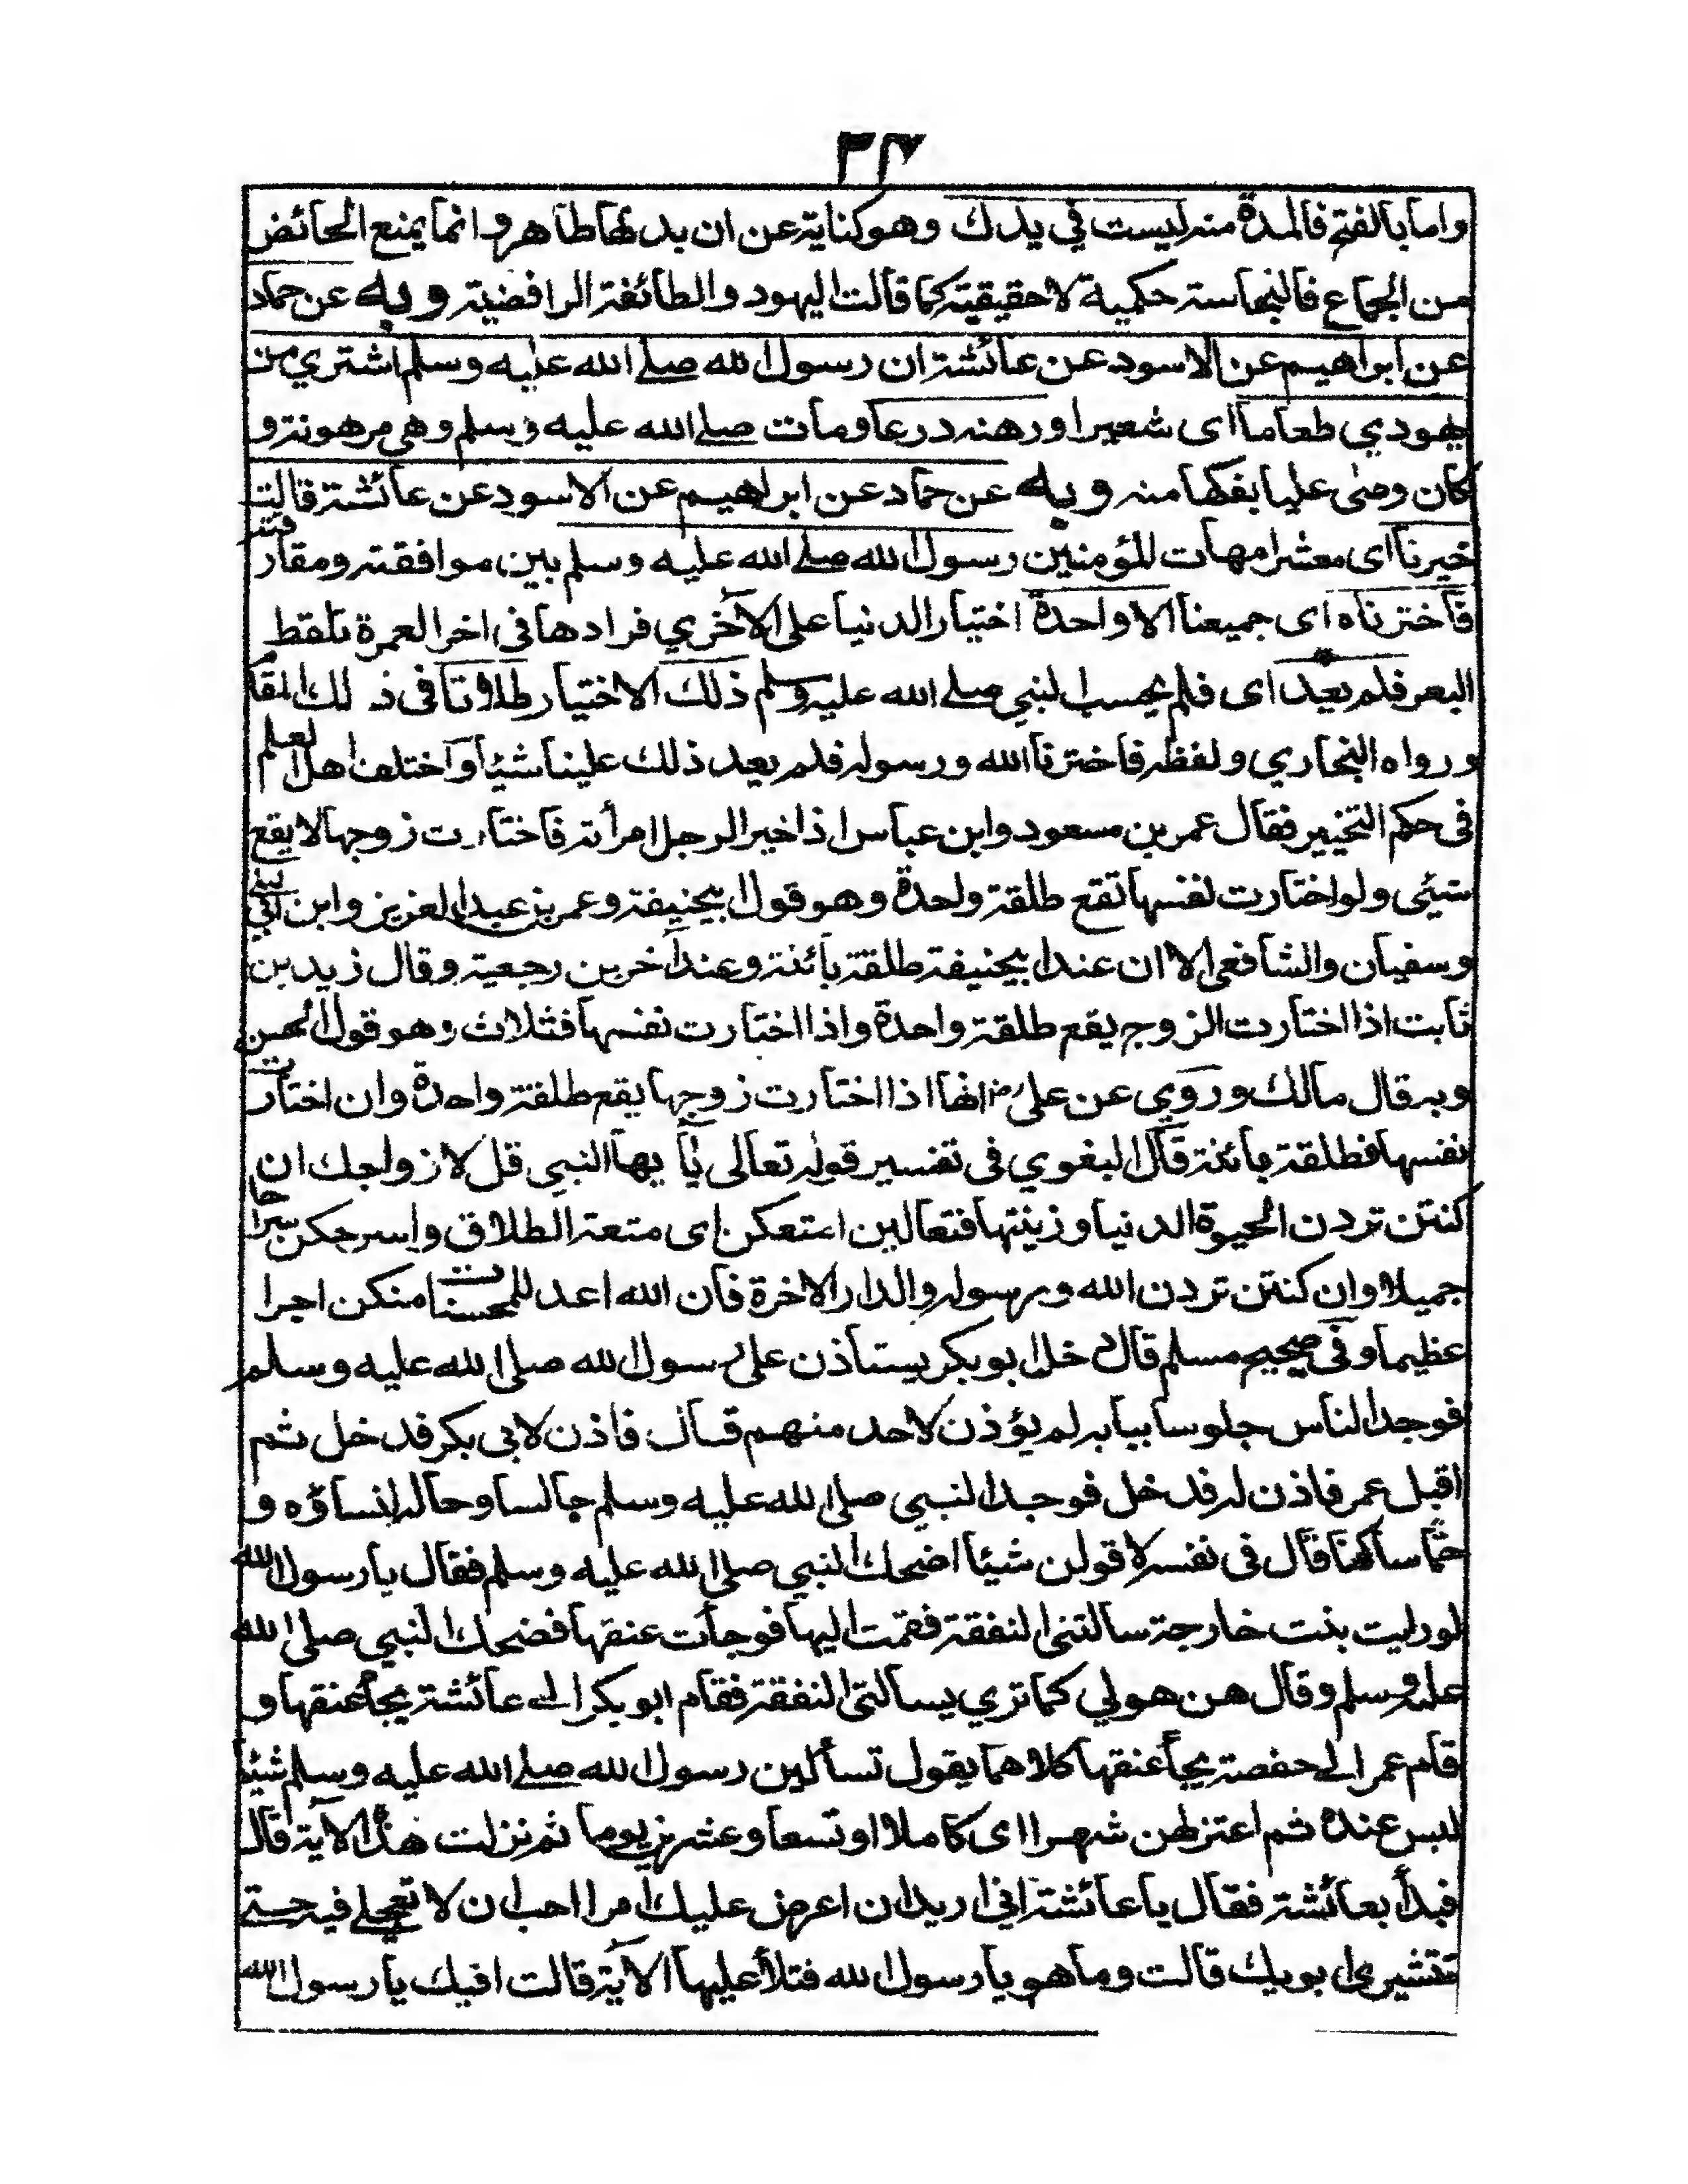 ٣٤
واما بالفتح فالمدة منه ليست في يدك وهو كناية عن ان بدنها طاهر وانما يمنع الحائض
من الجماع فالنجاسة حكمية لا حقيقية كما قالت اليهود والطائفة الرافضية وبه عن حماد
عن ابراهيم عن الاسود عن عائشة ان رسول الله صلے الله عليه وسلم اشتري من
يهودي طعاما اى شعيرا ورهنه درعا ومات صلے الله عليه وسلم وهي مرهونة و
كان وصى عليا بفكها منه وبه عن حماد عن ابراهيم عن الاسود عن عائشة قالت
خيرنا اى معشر امهات المؤمنين رسول الله صلے الله عليه وسلم بين موافقته ومفارقته
فاخترناه اى جميعنا الا واحدة اختيار الدنيا على الاخري فرادها في اخر العمرة تلقط
البعر فلم يعد اى فلم يحسب النبي صلے الله عليه وسلم ذلك الاختيار طلاقا في ذلك المقا
ورواه البخاري ولفظه فاخترنا الله ورسوله فلم يعد ذلك علينا شيئا واختلف اهل العلم
في حكم التخيير فقال عمر بن مسعود وابن عباس اذا خير الرجل امرأته فاختارت زوجها لا يقع
شيئى ولو اختارت نفسها تقع طلقة واحدة وهو قول ابيحنيفة وعمر بن عبد العزيز وابن ابي ليلى
وسفيان والشافعى الا ان عند ابيحنيفة طلقة بائنة وعند اخرين رجعية وقال زيد بن
ثابت اذا اختارت الزوج يقع طلقة واحدة واذا اختارت نفسها فثلاث وهو قول الحسن
وبه قال مالك وروي عن على رض انها اذا اختارت زوجها يقع طلقة واحدة وان اختارت
نفسها فطلقة بائنة قال البغوي في تفسير قوله تعالى يٰا يها النبي قل لازواجك ان
كنتن تردن الحيوة الدنيا وزينتها فتعالين امتعكن اى متعة الطلاق واسرحكن سراحا
جميلا وان كنتن تردن الله ورسوله والدار الاخرة فان الله اعد للمحسنات منكن اجرا
عظيما وفي صحيح مسلم قال دخل ابو بكر يستاذن على رسول الله صلى الله عليه وسلم
فوجد الناس جلوسا ببابه لم يؤذن لاحد منهم قال فاذن لابى بكر فدخل ثم
اقبل عمر فاذن له فدخل فوجد النبي صلى الله عليه وسلم جالسا وحاله نساؤه و
حما ساكنا قال في نفسه لاقولن شيئا اضحك النبي صلى الله عليه وسلم فقال يا رسول الله
لو رايت بنت خارجة سالتنى النفقة فقمت اليها فوجأت عنقها فضحك النبي صلى الله
عليه وسلم وقال هن هولي كما تري يسالتى النفقة فقام ابو بكر الى عائشة يجأ عنقها و
قام عمر الى حفصة يجأ عنقها كلاهما يقول تسألين رسول الله صلے الله عليه وسلم شيئا
ليس عنده ثم اعتزلهن شهرا اى كاملا او تسعا وعشرين يوما ثم نزلت هذه الآية قال
فبدأ بعائشة فقال يا عائشة انى اريد ان اعرض عليك امرا احب ان لا تعجلى فيه حتے
تستشيرى ابويك قالت وما هو يا رسول الله فتلا عليها الآية قالت افيك يا رسول الله